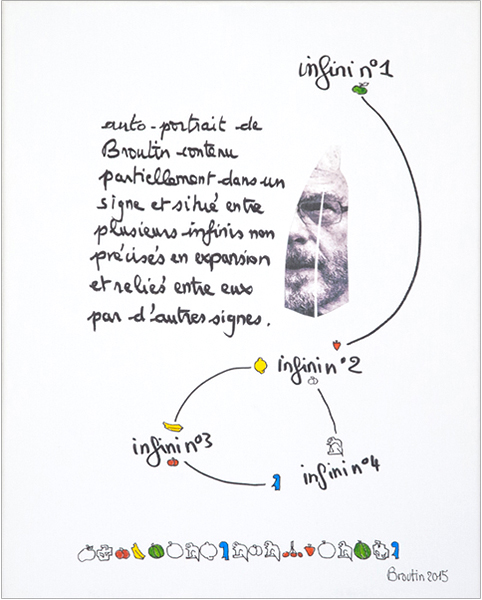 infini nº1
auto-portrait de
Broutin contenu
partiellement dans un
signe et situé entre
plusieurs infinis non
précisés en expansion
et reliés entre eux
par d'autres signes.
infini nº2
infini nº3
infini nº4
Broutin 2015